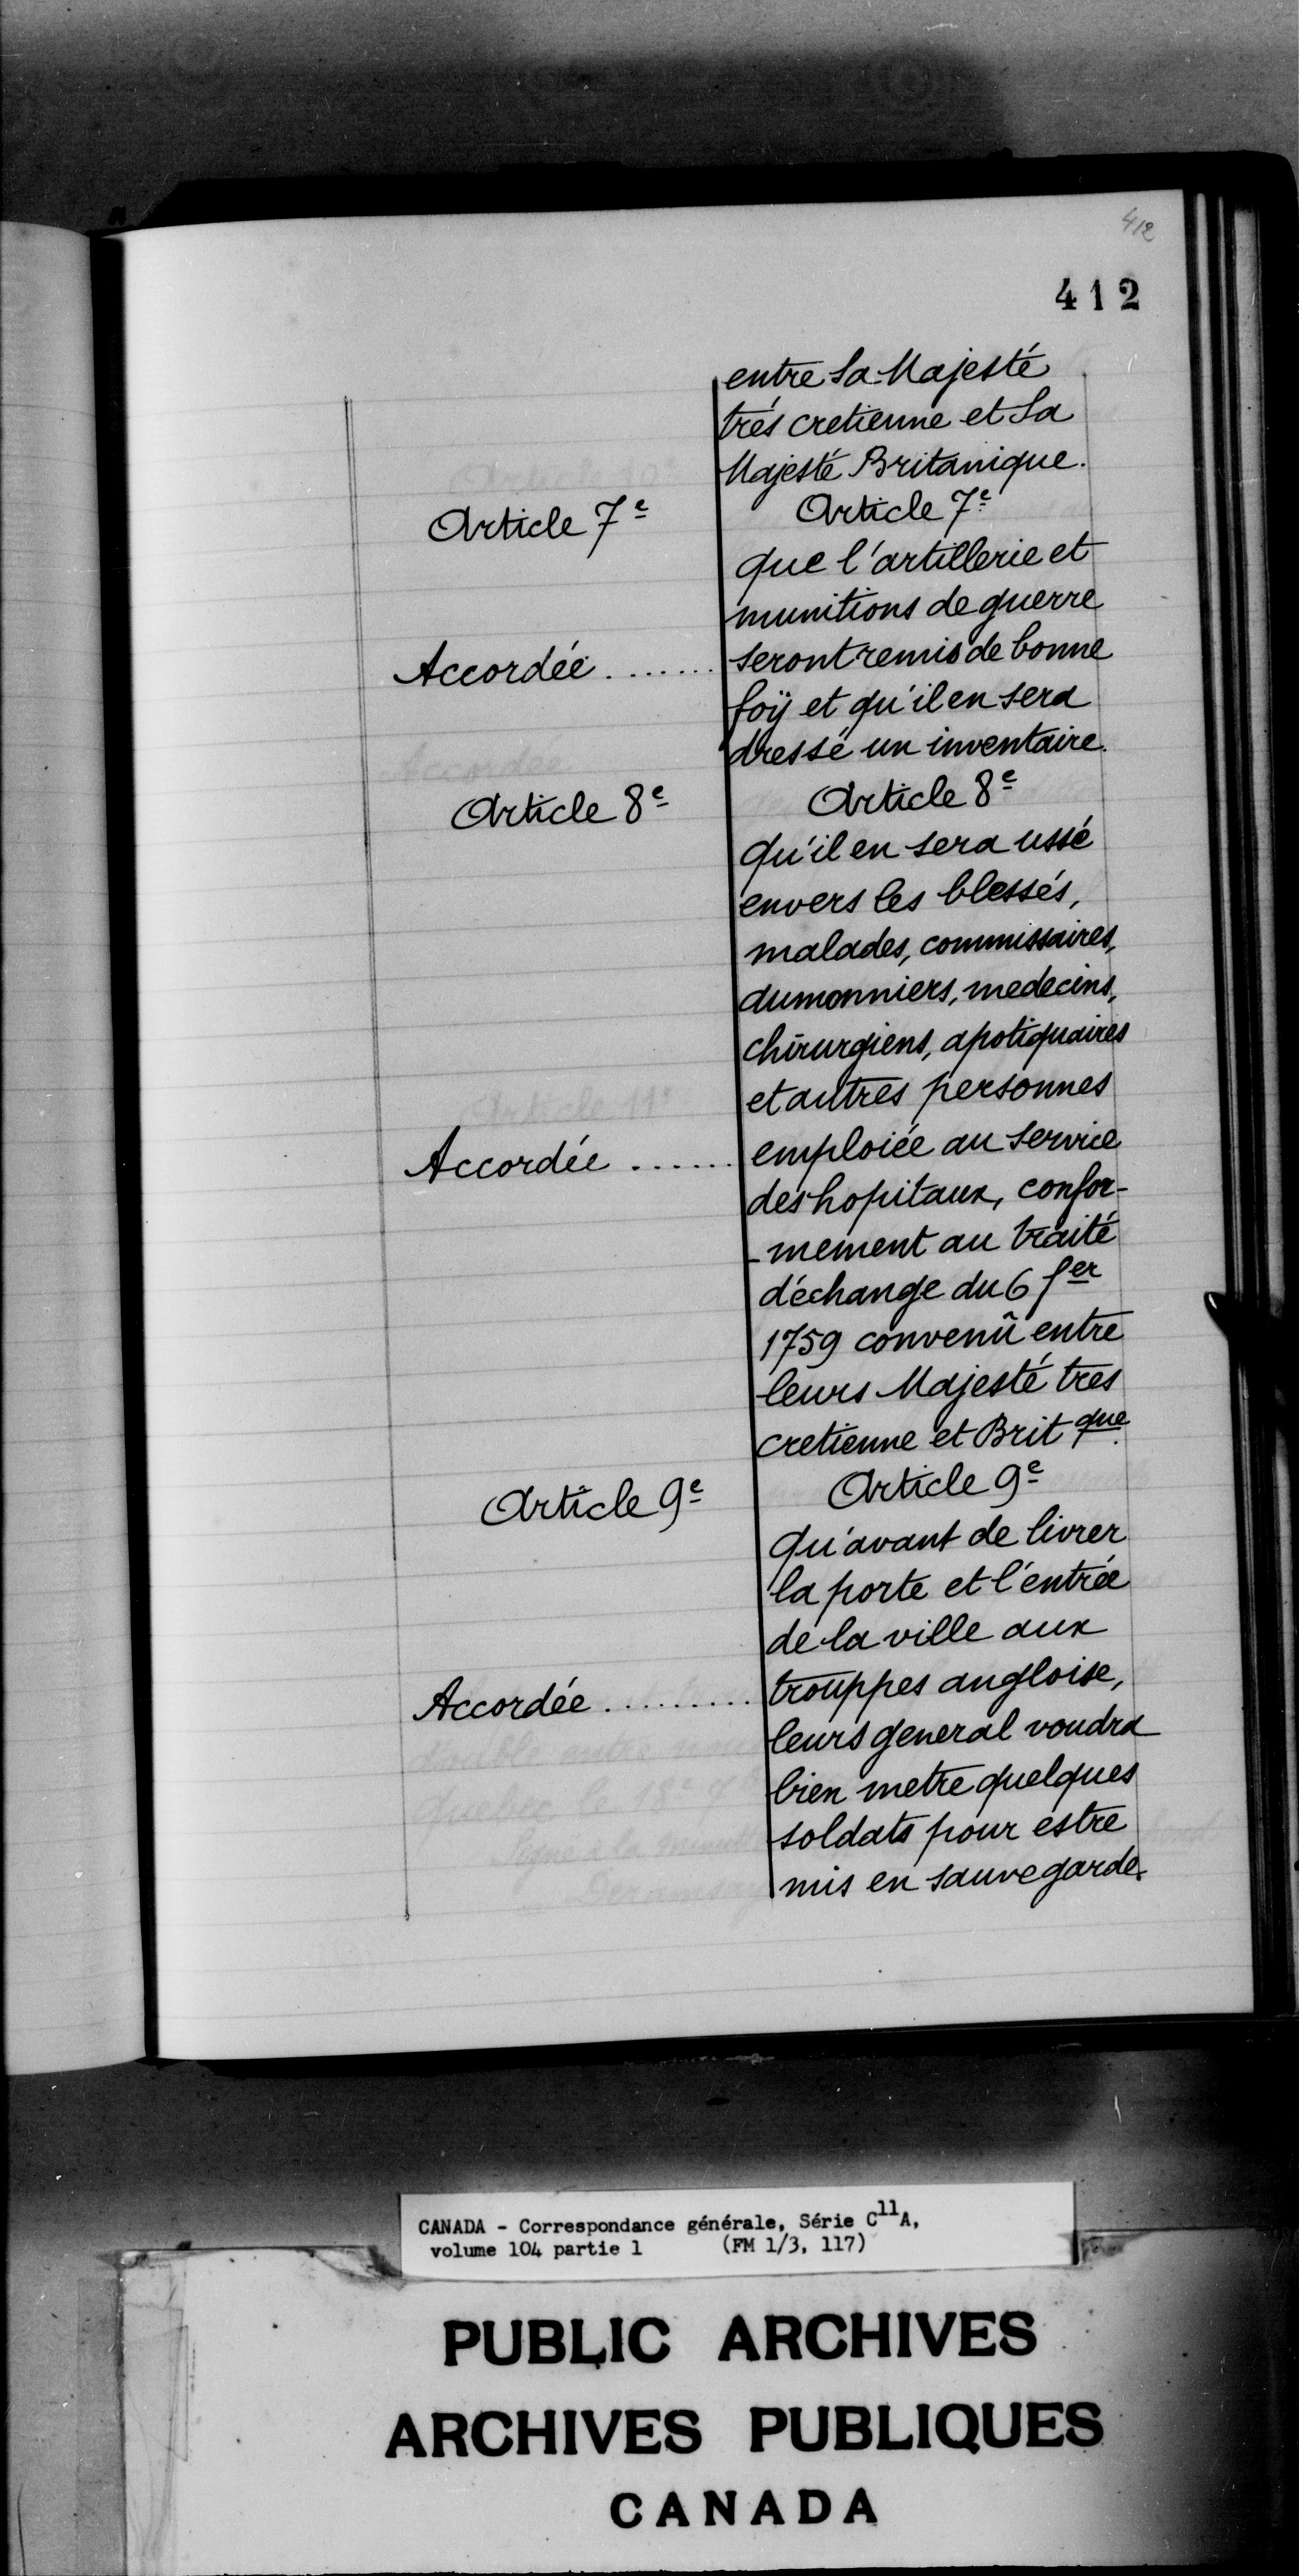 412
412
entre Sa Majesté
trés cretienne et Sa
Majesté Britanique.
Article 7e
Article 7e
que l'artillerie et
munitions de guerre
Accordée ....... seront remis de bonne
foÿ et qu'il en sera
dressé un inventaire.
Article 8e
Article 8e
qu'il en sera ussé
envers les blessés,
malades, commissaires,
aumonniers, medecins,
chirurgiens, apotiquaires
et autres personnes
Accordée ...... emploiée au service
des hopitaux, confor-
-mement au traité
d'échange du 6 fer
1759 convenû entre
leurs Majesté tres
cretienne et Brit que.
Article 9e
Article 9e
qu'avant de livrer
la porte et l'entrée
de la ville aux
Accordée ......... trouppes angloise,
leurs general voudra
bien metre quelques
soldats pour estre
mis en sauvegarde.
CANADA - Correspondance générale, Série C11A,
volume 104 partie 1 (FM 1/3, 117)
PUBLIC ARCHIVES
ARCHIVES PUBLIQUES
CANADA